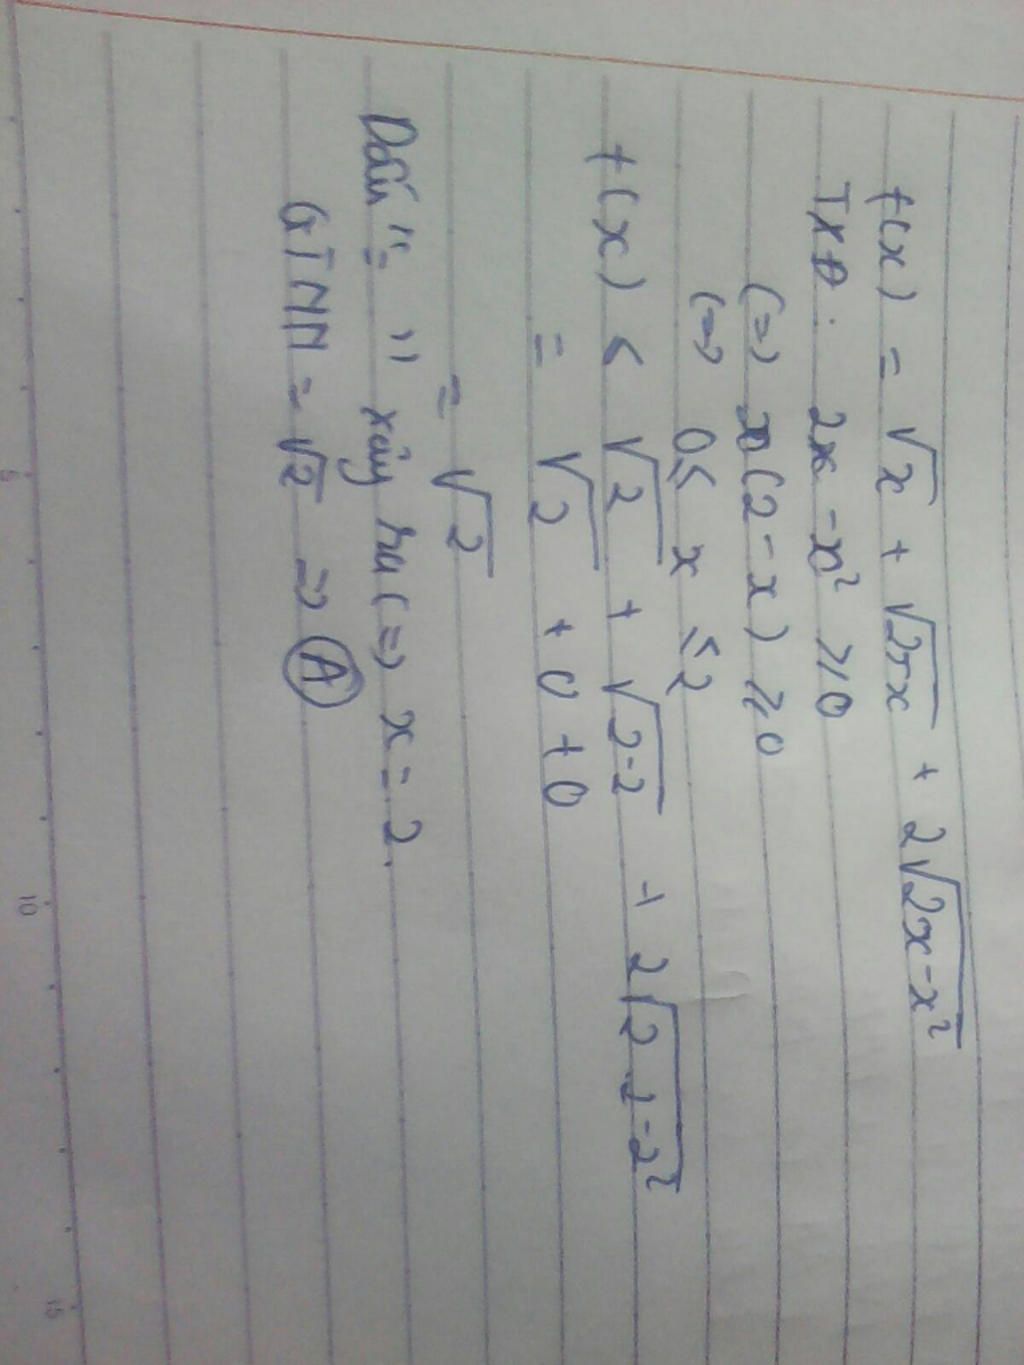 f(x) = √x + √2-x + 2√2x-x²
TXĐ: 2x - x² ≥ 0
(=) x(2-x) ≥ 0
(=) 0≤ x ≤2
f(x) < √2 + √2-2 + 2√2.2-2²
= √2 + 0 + 0
= √2
Dấu "=" xảy ra (=) x = 2.
GTNN = √2 => A
5
10
15